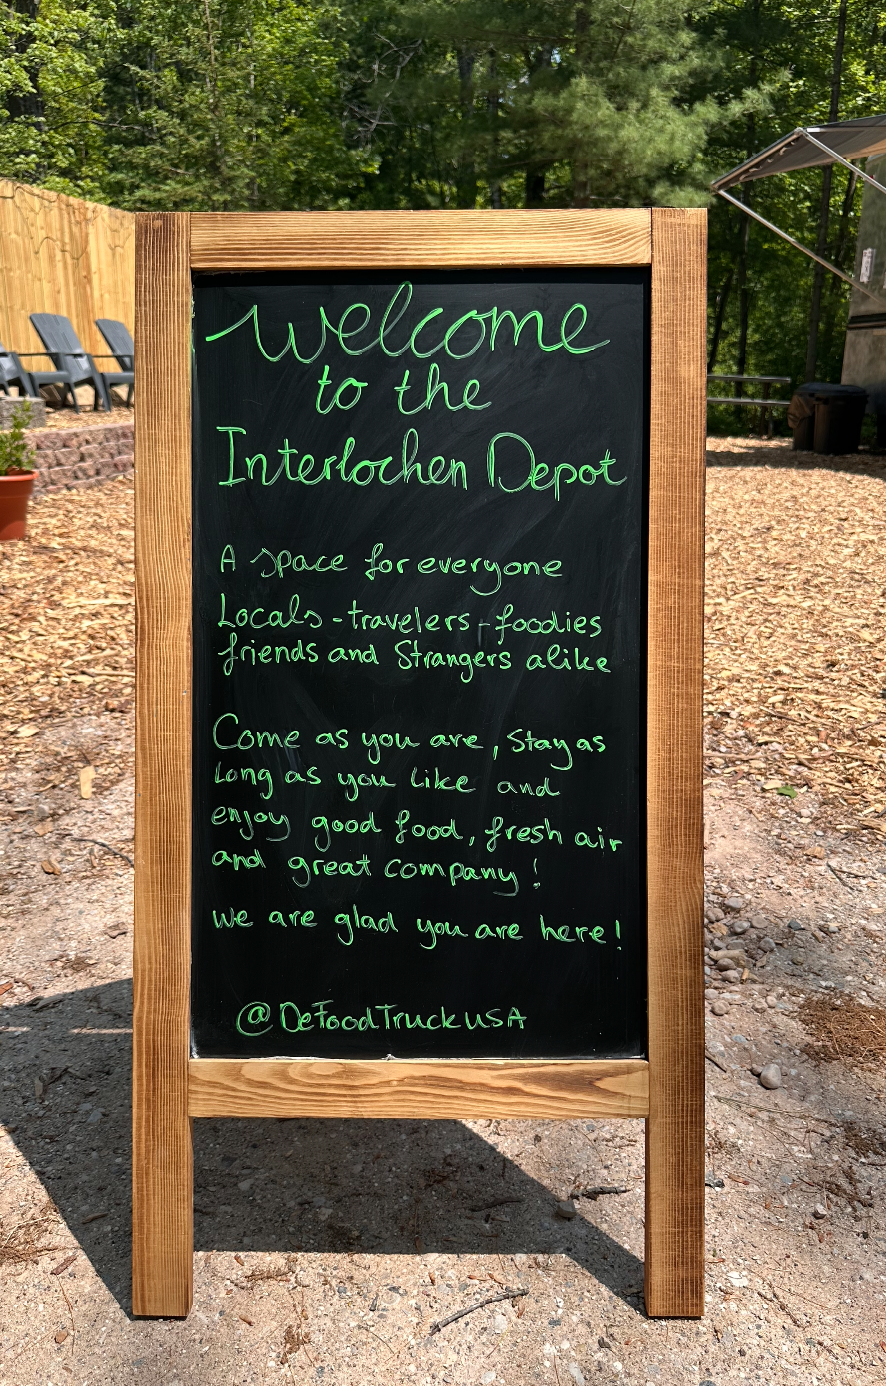 Welcome
to the
Interlochen Depot
A space for everyone
Locals - travelers - foodies
friends and Strangers alike
Come as you are, Stay as
long as you like and
enjoy good food, fresh air
and great company!
we are glad you are here!
@DeFoodTruckUSA